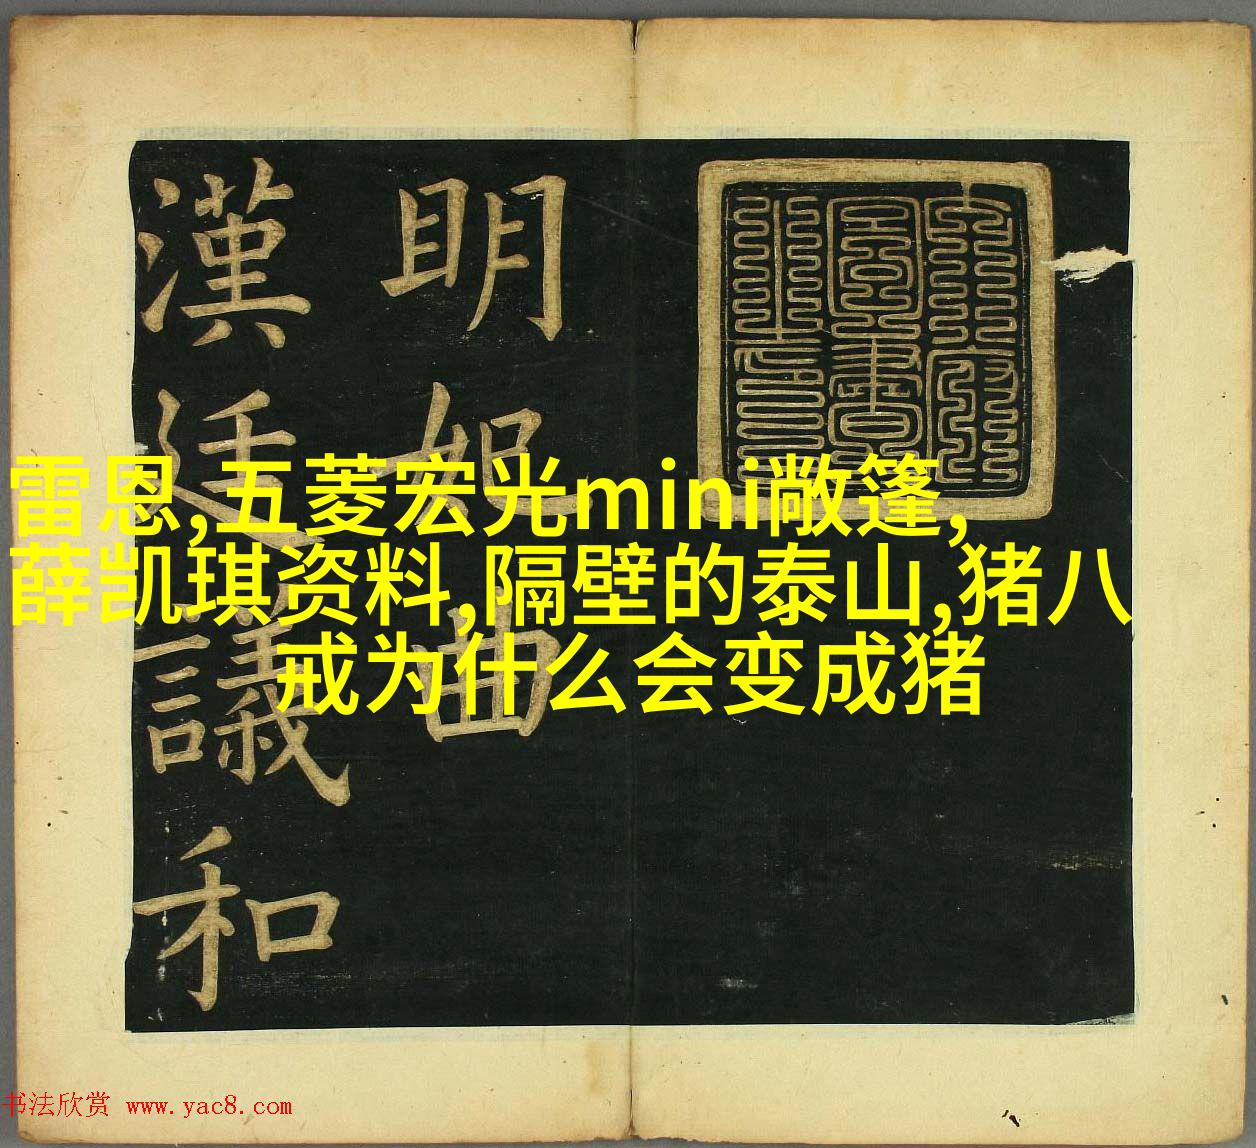 明妃曲
漢廷議和
雷恩,五菱宏光mini敞篷,
薛凯琪资料,隔壁的泰山,猪八
戒为什么会变成猪
书法欣赏 www.yac8.com